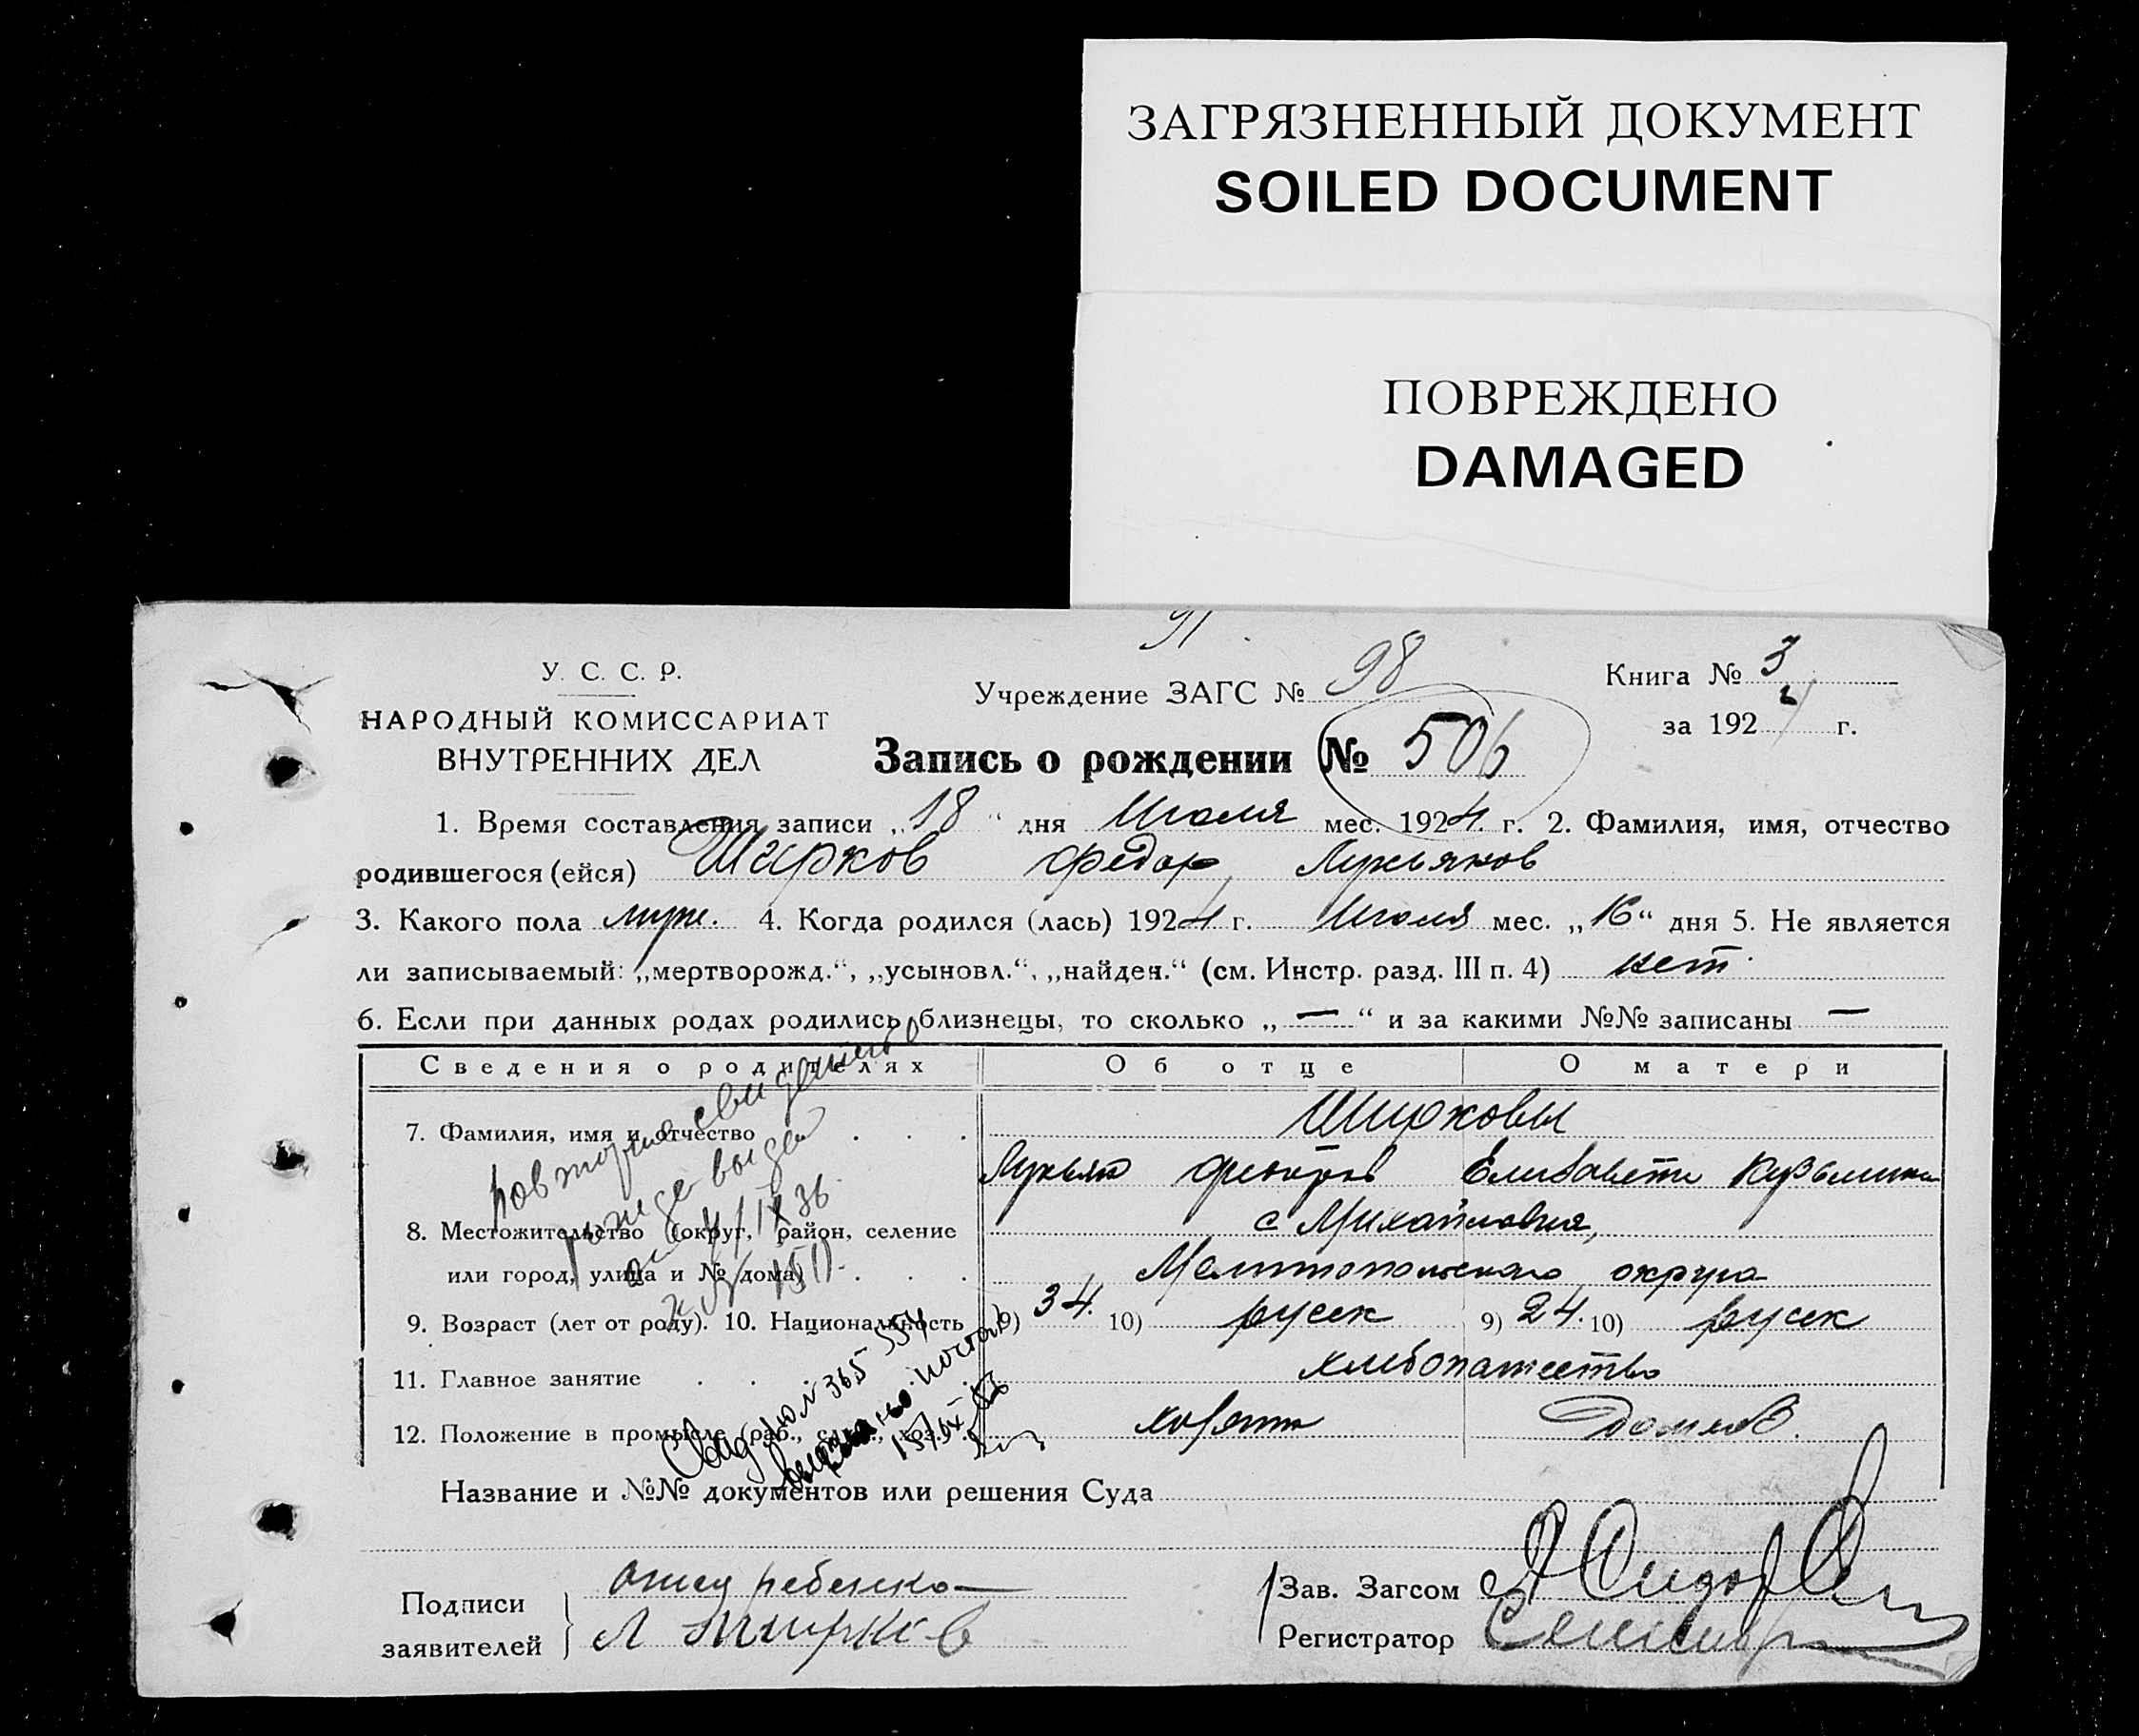 ЗАГРЯЗНЕННЫЙ ДОКУМЕНТ
SOILED DOCUMENT
ПОВРЕЖДЕНО
DAMAGED
91
У. С. С. Р.
НАРОДНЫЙ КОМИССАРИАТ
ВНУТРЕННИХ ДЕЛ
Учреждение ЗАГС № 98
Книга № 3
за 1924 г.
Запись о рождении № 506
1. Время составления записи „18“ дня Июля мес. 1924 г. 2. Фамилия, имя, отчество
родившегося (ейся) Ширков Федор Лукьянов
3. Какого пола муж. 4. Когда родился (лась) 1924 г. Июля мес. „16“ дня 5. Не является
ли записываемый: „мертворожд.“, „усыновл.“, „найден.“ (см. Инстр. разд. III п. 4) нет
6. Если при данных родах родились близнецы, то сколько „—“ и за какими №№ записаны —
Сведения о родителях Об отце О матери
7. Фамилия, имя и отчество . . . Ширковы
Лукьян Федоров Елизавета Кузьминич
8. Местожительство (округ, район, селение с Михайловка,
или город, улица и № дома) . . . Мелитопольского округа
9. Возраст (лет от роду). 10. Национальность 9) 34. 10) русск 9) 24. 10) русск
11. Главное занятие . . . хлебопашество
12. Положение в промысле (раб., служ., хоз.) . хозяин домхоз.
Повторное свидетельство
выдан
4/IX 36
№ 1511
Свид июл 365 554
выдано
15/IX
Название и №№ документов или решения Суда
Подписи заявителей } отец ребенка —
Л Ширков
Зав. Загсом
Регистратор